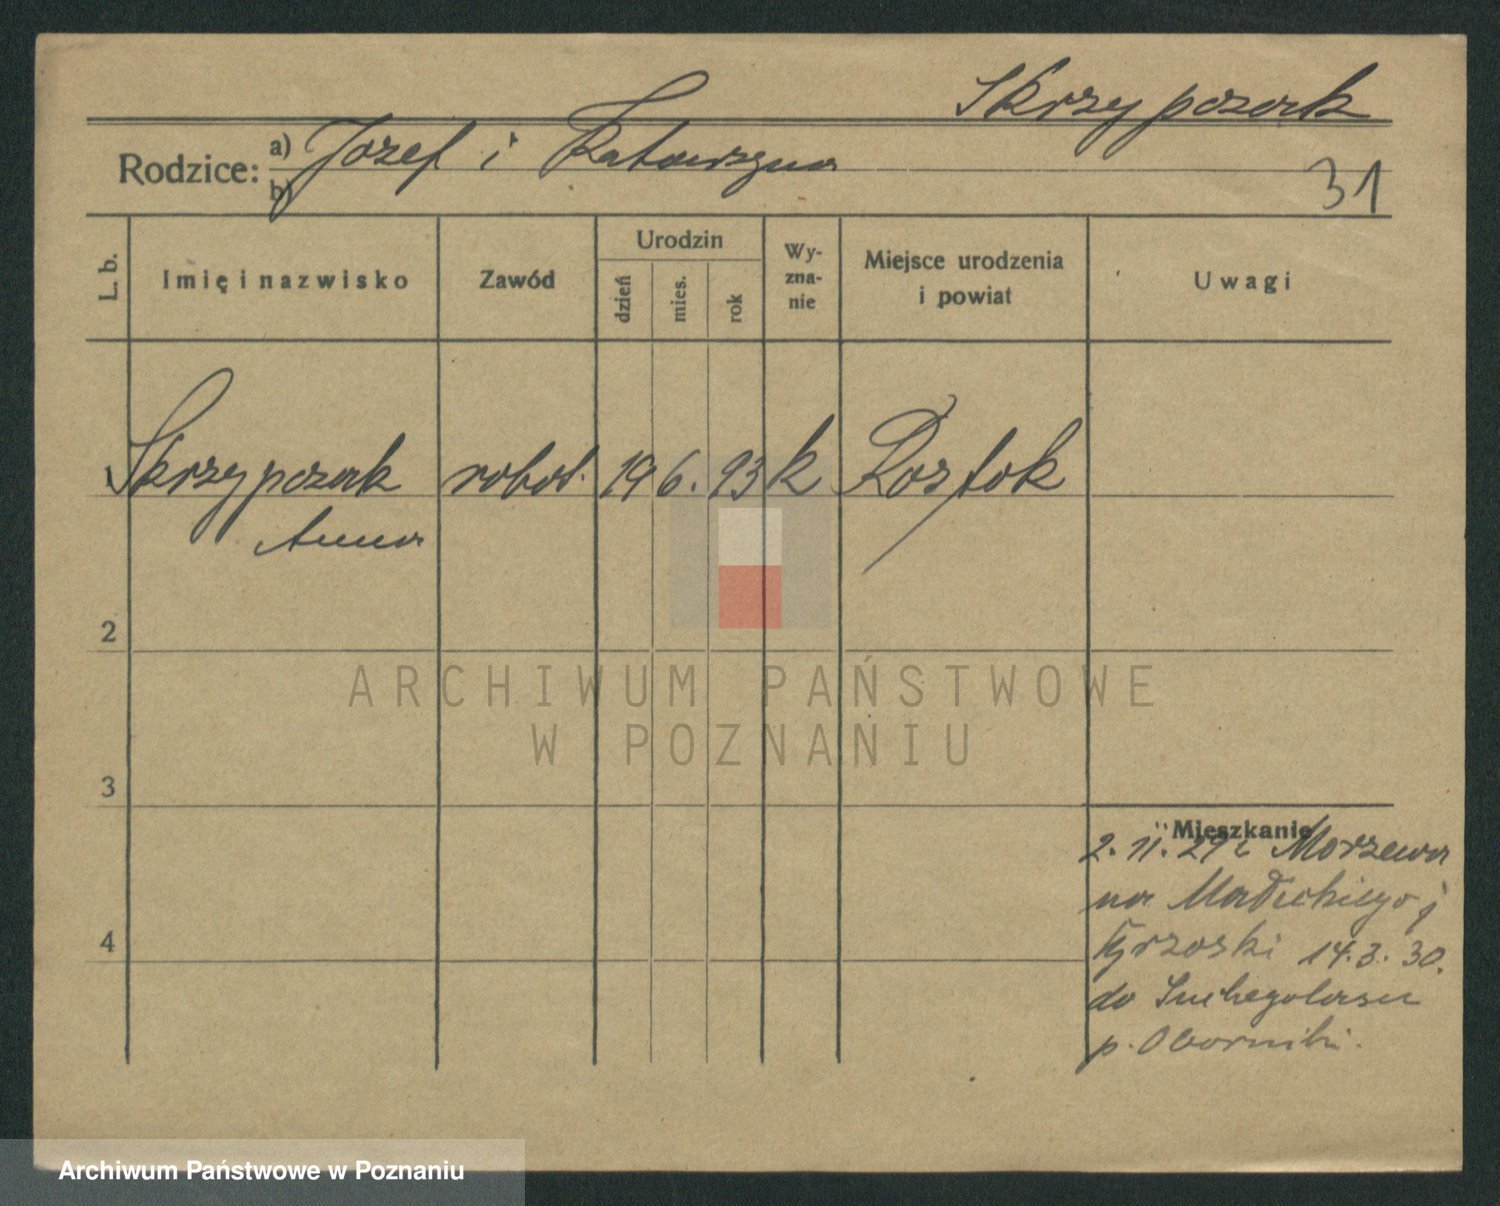 Skrzypczak
Rodzice: a) Józef i Katarzyna
b)
31
L. b.
Imię i nazwisko
Zawód
Urodzin
dzień
mies.
rok
Wy-
zna-
nie
Miejsce urodzenia
i powiat
Uwagi
Skrzypczak robot. 19 6. 93 k Rostok
Anna
2
ARCHIWUM PAŃSTWOWE
W POZNANIU
3
Mieszkanie
2. 11. 29 z Morzewa
na Madeckiego j
14. 3. 30.
4
do Suchegolasu
p. Oborniki.
Archiwum Państwowe w Poznaniu